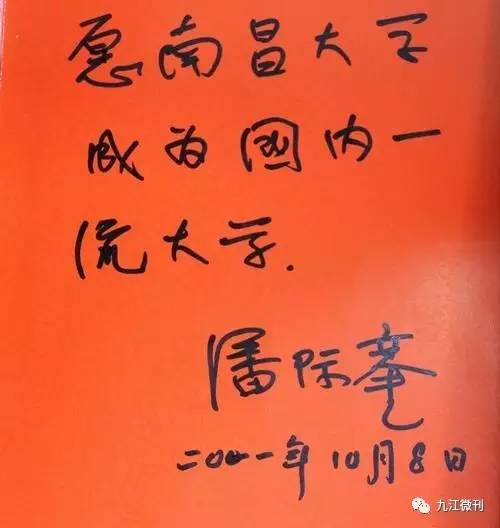 愿南昌大学
成为國内一
流大学.
潘际銮
二〇〇一年10月8日
九江微刊